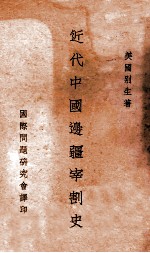 英國別生著
近代中國邊疆宰割史
國際問題研究會譯印